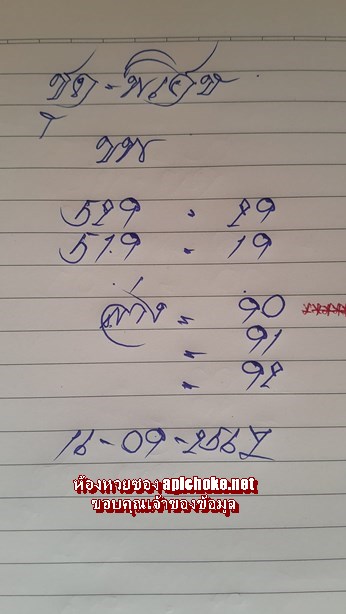 ชุด - พิเศษ
บน
529 = 29
519 = 19
ล่าง = 90
= 91
= 92
16-09-2567
ห้องหวยซอง apichoke.net
ขอบคุณเจ้าของข้อมูล